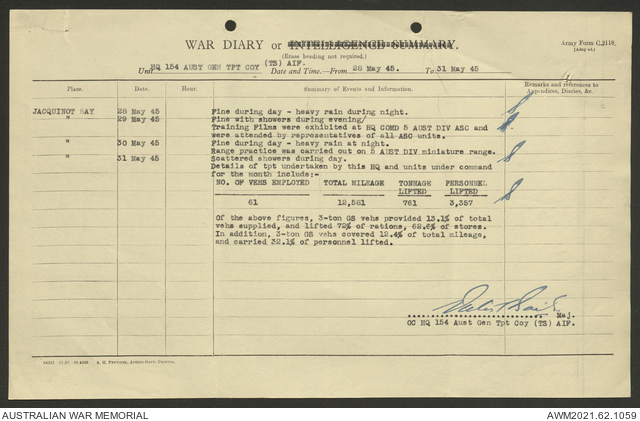 WAR DIARY or INTELLIGENCE SUMMARY.
Army Form C.2118.
(Erase heading not required.)
Unit HQ 154 AUST GEN TPT COY (TS) AIF. Date and Time.—From 28 May 45. To 31 May 45
Place. Date Hour. Summary of Events and Information. Remarks and references to
Appendices, Diaries, &c.
JACQUINOT BAY 28 May 45 Fine during day - heavy rain during night.
" 29 May 45 Fine with showers during evening/
Training Films were exhibited at HQ COMD 5 AUST DIV ASC and
were attended by representatives of all ASC units.
" 30 May 45 Fine during day - heavy rain at night.
Range practice was carried out on 5 AUST DIV miniature range.
" 31 May 45 Scattered showers during day.
Details of tpt undertaken by this HQ and units under command
for the month include:-
NO. OF VEHS EMPLOYED TOTAL MILEAGE TONNAGE LIFTED PERSONNEL LIFTED
61 12,581 761 3,357
Of the above figures, 3-ton GS vehs provided 13.1% of total
vehs supplied, and lifted 72% of rations, 62.6% of stores.
In addition, 3-ton GS vehs covered 12.4% of total mileage,
and carried 32.1% of personnel lifted.
Maj.
OC HQ 154 Aust Gen Tpt Coy (TS) AIF.
AUSTRALIAN WAR MEMORIAL
AWM2021.62.1059